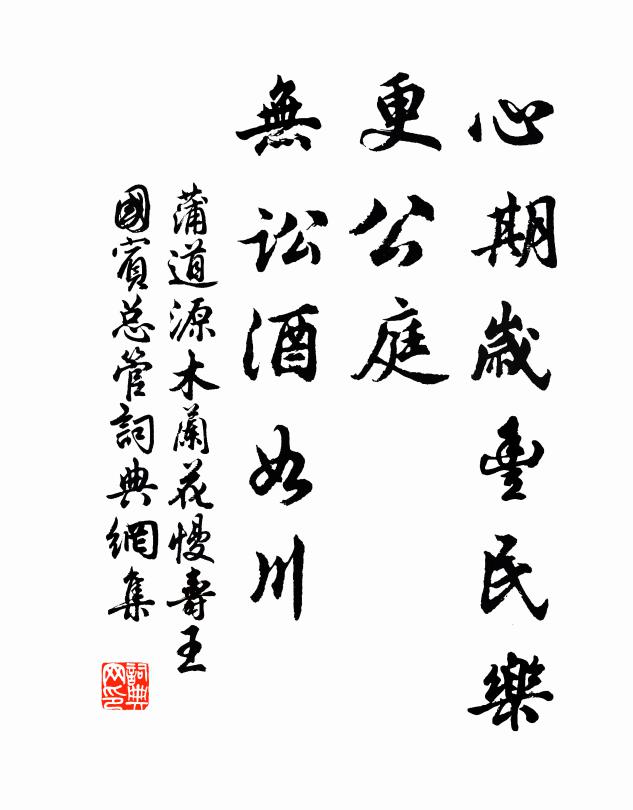 心期歲豐民樂
更公庭
無訟酒如川
蒲道源木蘭花慢壽王
國賓总管詞典網集
詞典
网印